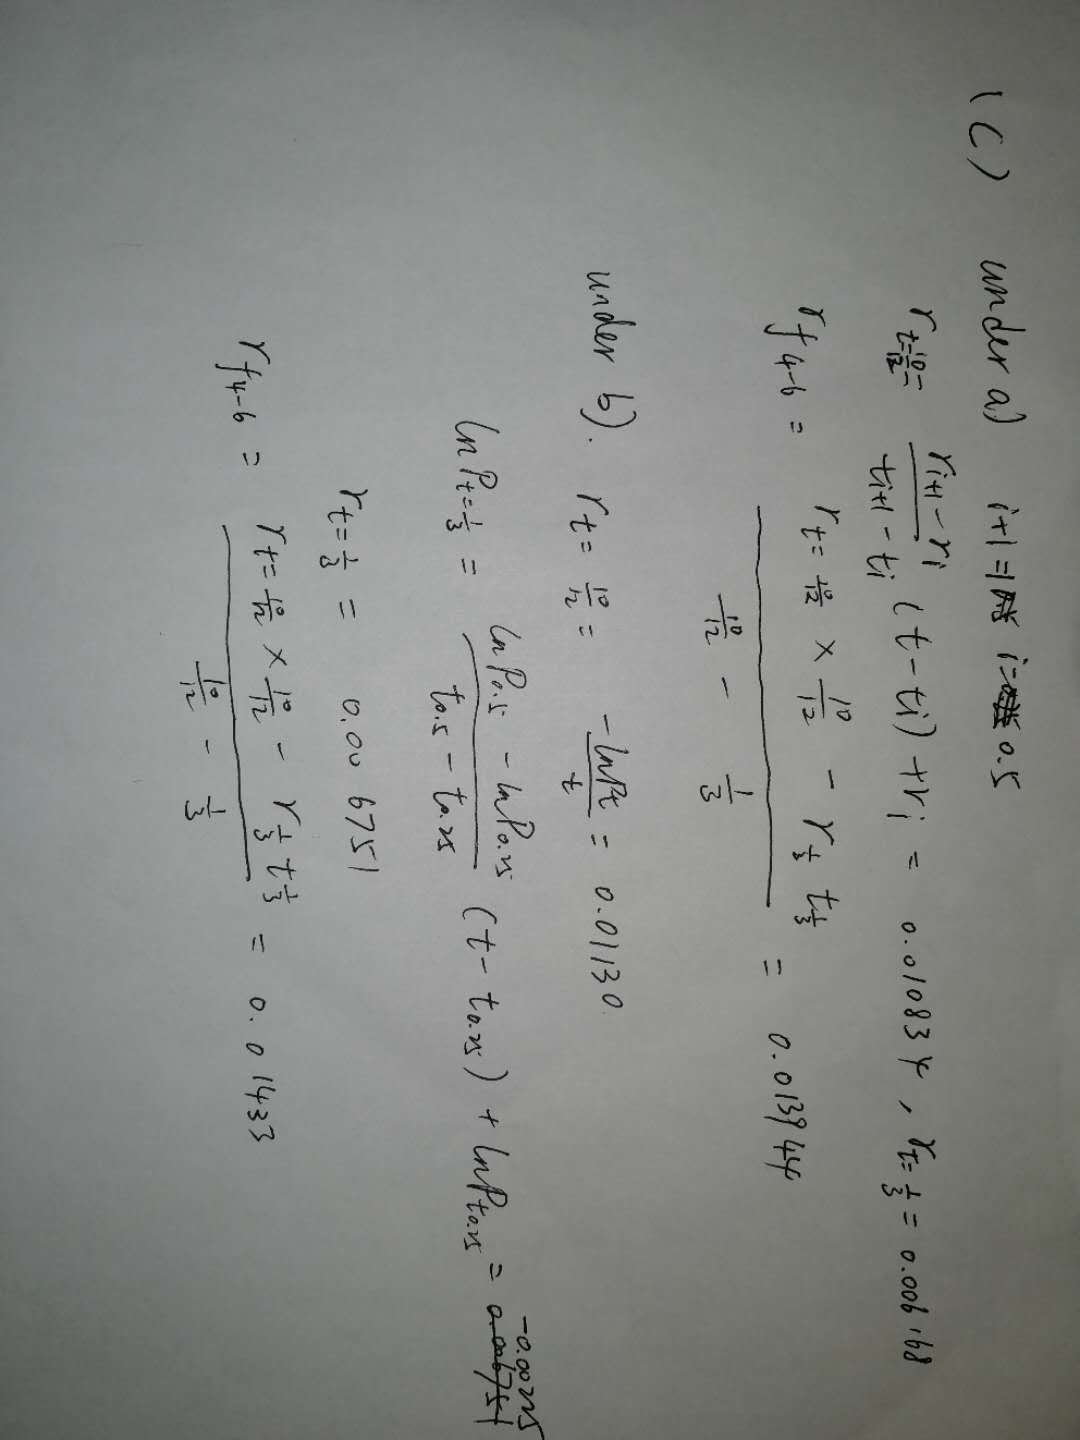 1 C) under a) i+1=1 i=0.5
r_{t=\frac{10}{12}} = \frac{r_{i+1} - r_i}{t_{i+1} - t_i} (t - t_i) + r_i = 0.010834, r_{t=\frac{1}{3}} = 0.006168
r_{f4-6} = \frac{r_{t=\frac{10}{12}} × \frac{10}{12} - r_{\frac{1}{3}} t_{\frac{1}{3}}}{\frac{10}{12} - \frac{1}{3}} = 0.013944
under b). r_{t=\frac{10}{12}} = \frac{-lnPt}{t} = 0.01130
lnP_{t=\frac{1}{3}} = \frac{lnP_{0.5} - lnP_{0.25}}{t_{0.5} - t_{0.25}} (t - t_{0.25}) + lnP_{t0.25} = -0.00225
r_{t=\frac{1}{3}} = 0.006751
r_{f4-6} = \frac{r_{t=\frac{10}{12}} × \frac{10}{12} - r_{\frac{1}{3}} t_{\frac{1}{3}}}{\frac{10}{12} - \frac{1}{3}} = 0.01433